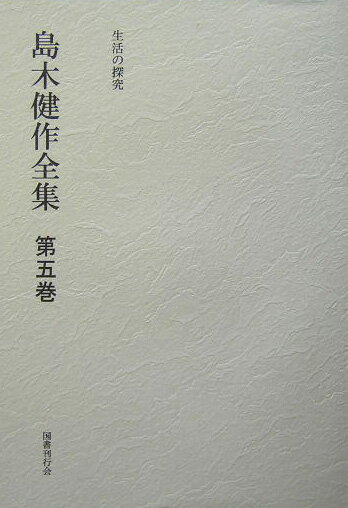 生活の探究
島木健作全集 第五巻
国書刊行会